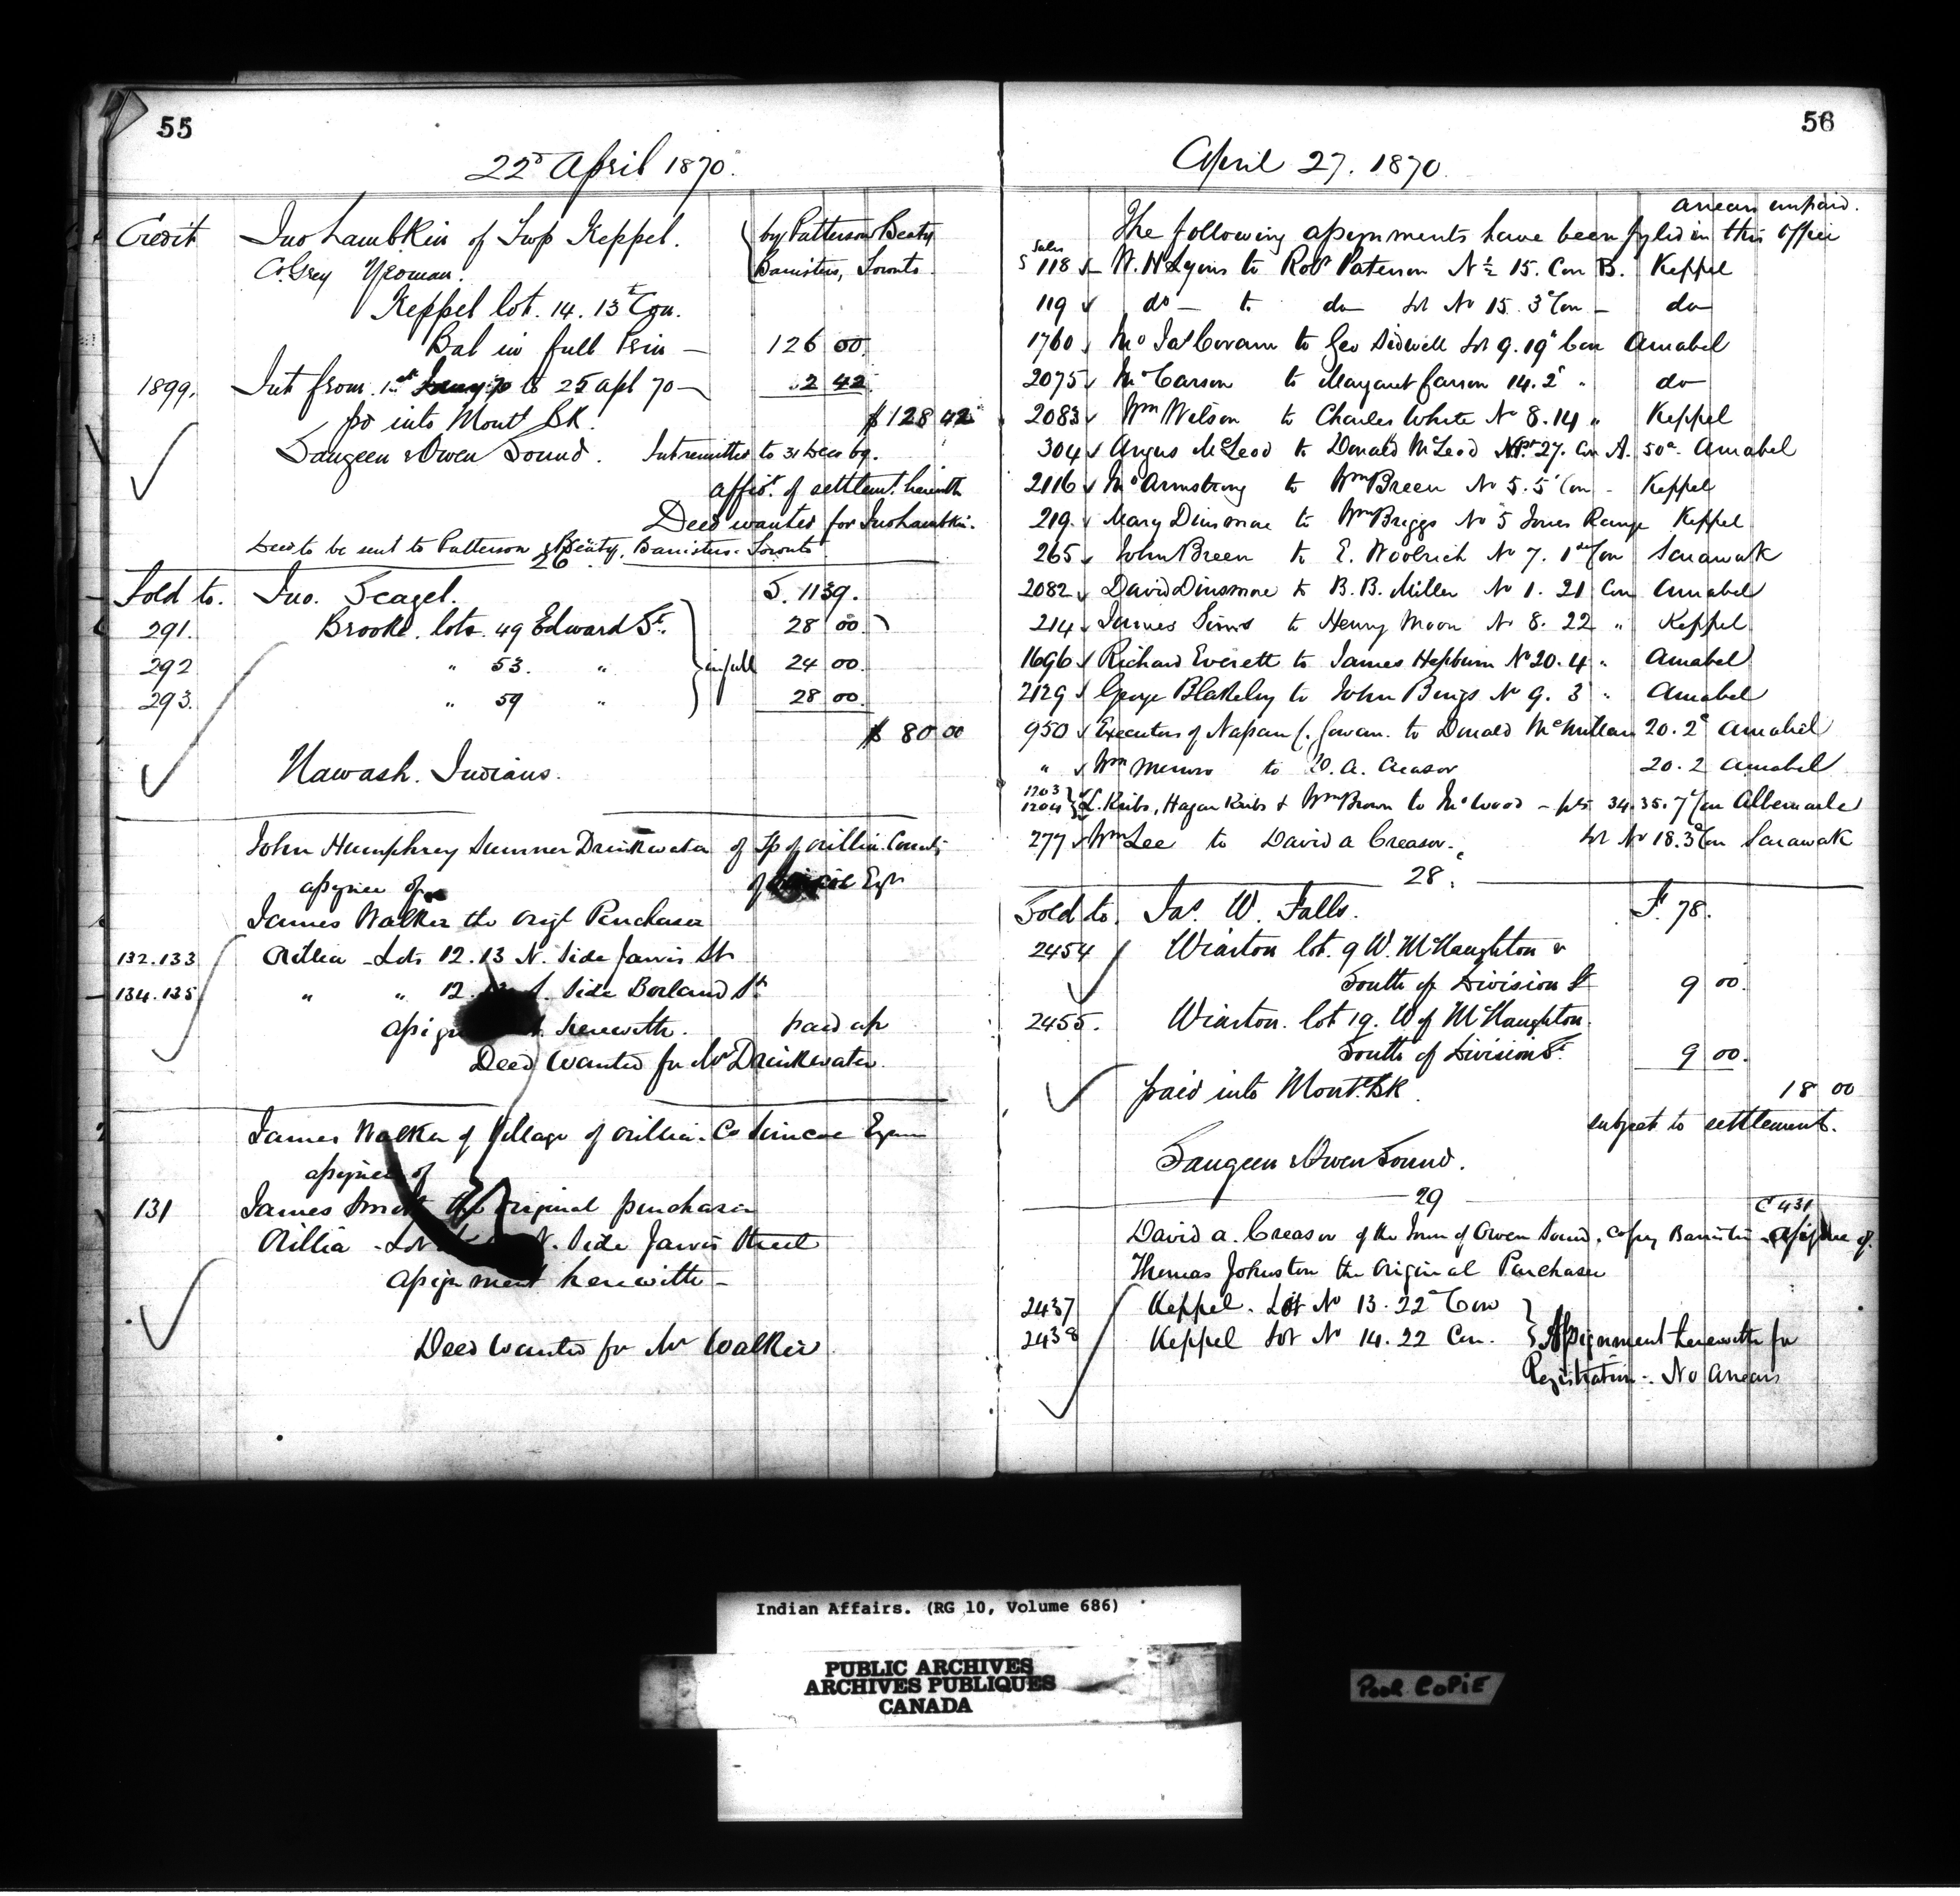 55
22d April 1870.
Credit Jno Lambkin of Twp Keppel. by Patterson & Beaty
Co. Grey Yeoman. Barristers, Toronto
Keppel lot. 14. 13th Con.
Bal in full Prin — 126 00
1899. Int from 1st Jany 70 to 25 apl 70 — 2 42
pd into Mont Bk. $128 42
Saugeen & Owen Sound. Int remitted to 31 Decr 69.
affidt. of settlemt. herewith
Deed wanted for Jno Lambkin.
Deed to be sent to Patterson & Beaty, Barristers. Toronto
26
Sold to. Jno. Seagel. S. 1139.
291. Brooke. lots. 49 Edward St. 28 00
292 " 53. " in full 24 00
293. " 59 " 28 00
$ 80 00
Nawash. Indians.
John Humphrey Sumner Drinkwater of Tp of Orillia. County
assignee of of Simcoe Eqr
James Walker the Origl Purchaser
132.133 Orillia - Lots 12.13 N. Side Jarvis St
134.135 " " 12. S. Side Borland St
herewith. paid up
Deed Wanted for Mr Drinkwater.
James Walker of Village of Orillia. Co Simcoe Eqr
assignee of
131 James the Original purchaser
Orillia - Lot N. Side Jarvis Street
Assignment herewith —
Deed Wanted for Mr Walker
56
April 27. 1870
arrears unpaid.
The following assignments have been fyled in this office
Sales
S 118 W. N Lyons to Robt Paterson N ½ 15. Con B. Keppel
119 do — to do Lot No 15. 3d Con — do
1760 to Geo Sidwell Lot 9. 19th Con Amabel
2075 Carson to Margaret Carson 14. 2d " do
2083 Wm Wilson to Charles White No 8. 14 " Keppel
304 Angus McLeod to Donald McLeod 27. Con A. 50a. Amabel
2116 Armstrong to Wm Breen No 5. 5th Con - Keppel
219. Mary Dinsmore to Wm Briggs No 5 Jones Range Keppel
265 John Breen to E. Woolrich No 7. 1st Con Sarawak
2082 David Dinsmore to B. B. Miller No 1. 21 Con Amabel
214 James Sims to Henry Moon No 8. 22 " Keppel
1696 Richard Everett to James Hepburn No 20. 4 " Amabel
2129 George Blakeley to John No 9. 3 " Amabel
950 Executors of Gowan. to Donald McMillan 20. 2d Amabel
" Wm Munro to D. A. Creasor 20. 2 Amabel
1203
1204 L. Kribs, Hagan Kribs & Wm Brown to Wood — pts 34. 35. 7th Con Albemarle
277 Wm Lee to David a Creasor. Lot No 18. 3d Con Sarawak
28.
Sold to. Jas. W. Falls. F. 78.
2454 Wiarton lot. 9 W. McNaughton &
South of Division St 9 00.
2455. Wiarton. lot 19. W of McNaughton.
South of Division St. 9 00.
paid into Mont. Bk 18 00
subject to settlement.
Saugeen & Owen Sound.
29
C 431
David a. Creasor of the Town of Owen Sound, Co Grey Barrister - assignee of
Thomas Johnston the Original Purchaser
2437 Keppel. Lot No 13. 22d Con
2438 Keppel Lot No 14. 22 Con. Assignment herewith for
Registration - No Arrears
Indian Affairs. (RG 10, Volume 686)
PUBLIC ARCHIVES
ARCHIVES PUBLIQUES
CANADA
POOR COPIE